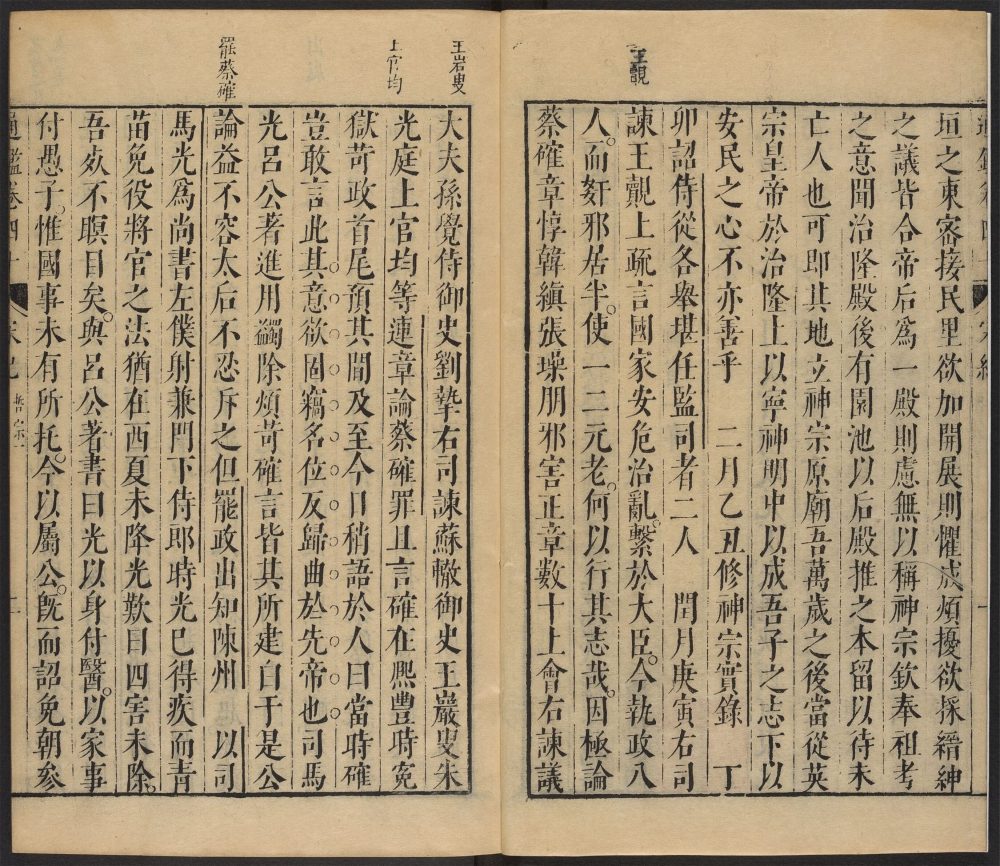 王覿
垣之東密接民里欲加開展則懼成煩擾欲採縉紳
之議皆合帝后爲一殿則慮無以稱神宗欽奉祖考
之意聞治隆殿後有園池以后殿推之本留以待未
亡人也可即其地立神宗原廟吾萬歲之後當從英
宗皇帝於治隆上以寧神明中以成吾子之志下以
安民之心不亦善乎 二月乙丑修神宗實錄 丁
卯詔侍從各舉堪任監司者二人 閏月庚寅右司
諫王覿上疏言國家安危治亂繫於大臣今執政八
人而奸邪居半使一二元老何以行其志哉因極論
蔡確章惇韓縝張璪朋邪害正章數十上會右諫議
王岩叟
上官均
罷蔡確
大夫孫覺侍御史劉摯右司諫蘇轍御史王巖叟朱
光庭上官均等連章論蔡確罪且言確在熈豐時寃
獄苛政首尾預其間及至今日稍語於人曰當時確
豈敢言此其意欲固竊名位反歸曲於先帝也司馬
光呂公著進用蠲除煩苛確言皆其所建白于是公
論益不容太后不忍斥之但罷政出知陳州 以司
馬光爲尚書左僕射兼門下侍郎時光已得疾而青
苗免役將官之法猶在西夏未降光歎曰四害未除
吾死不瞑目矣與呂公著書曰光以身付醫以家事
付愚子惟國事未有所托今以屬公既而詔免朝參
通鑑卷四十 宋紀 哲宗 二